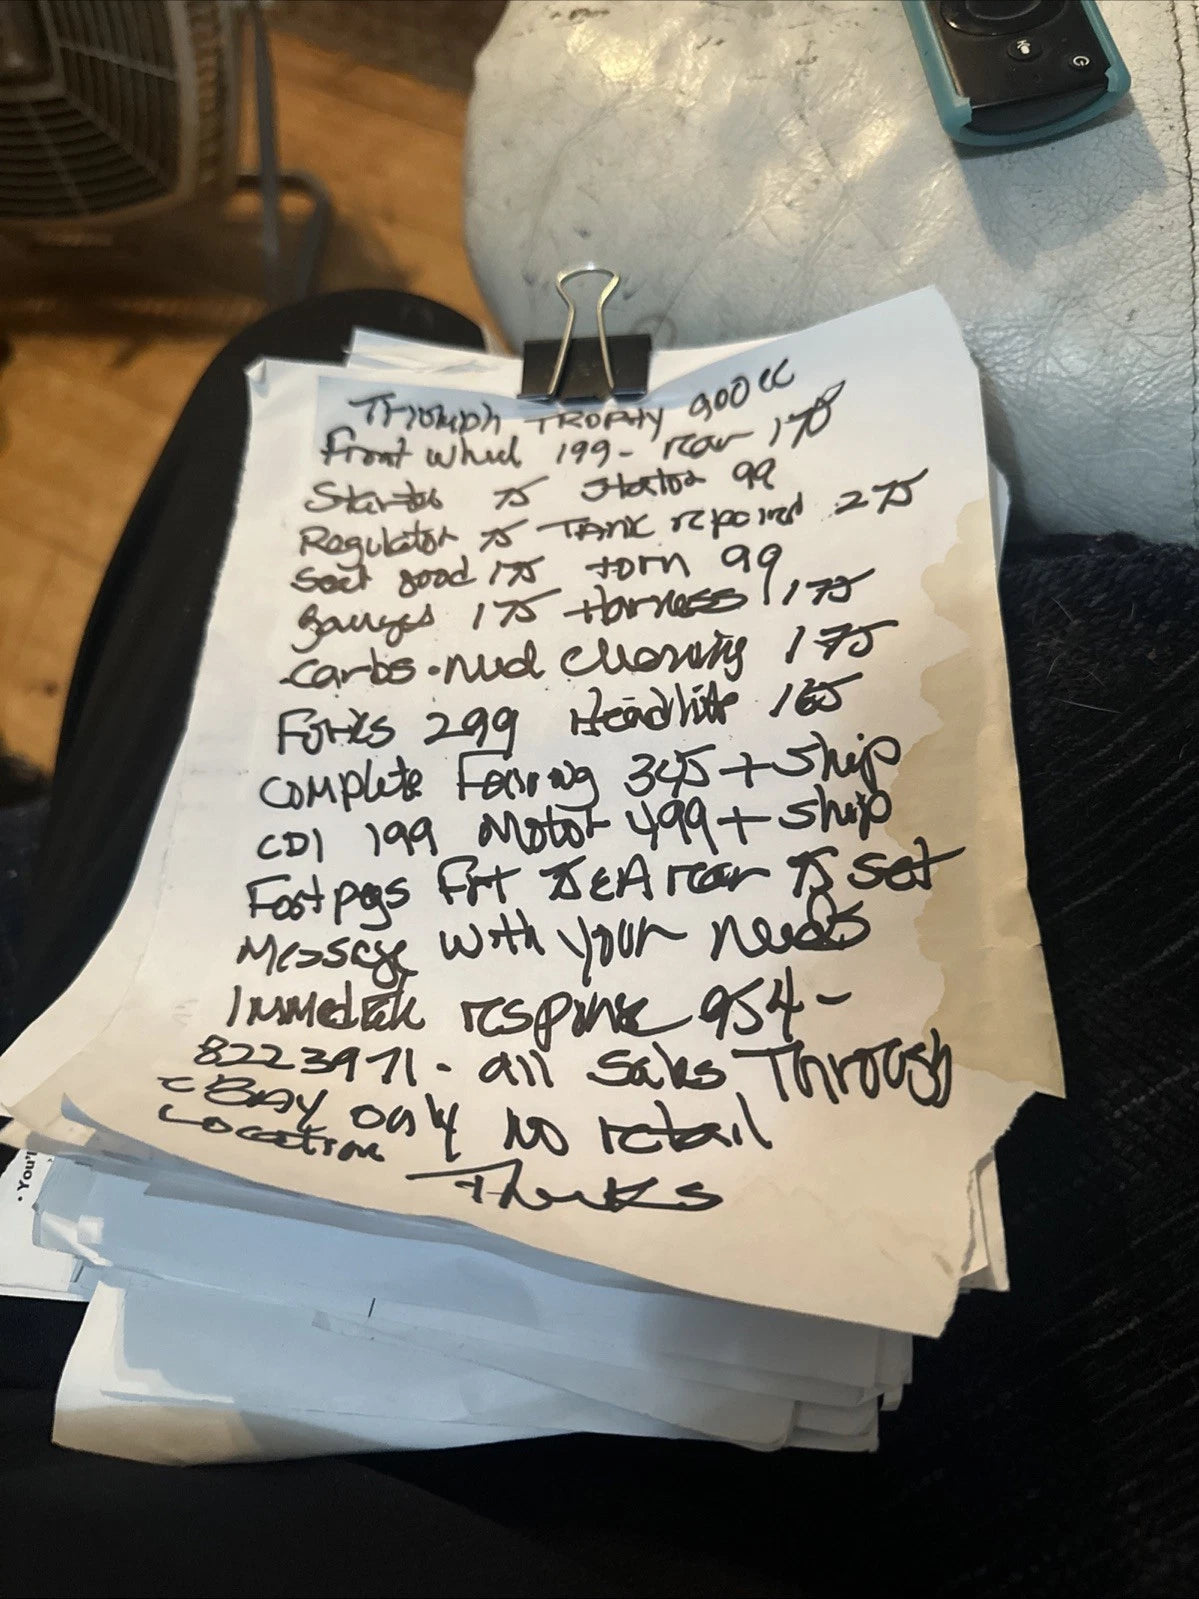 G
Triumph TROPHY 900cc
Front wheel 199- rear 175
Starter 75 Stator 99
Regulator 75 TANK repaired 275
Seat good 175 torn 99
Gauges 175 Harness 175
Carbs. need cleaning 175
Forks 299 Headlite 165
Complete Fairing 345 + Ship
CDI 199 Motor 499 + Ship
Footpegs Frt 75 EA rear 75 set
Message with your needs
Immediate response 954-
8223971- all sales Through
eBAY only No retail
Location
Thanks
• You'll